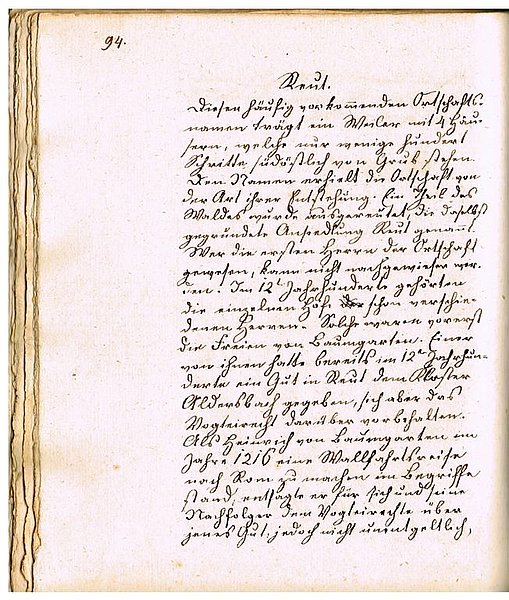 94.
Reut.
Diesen häufig vorkommenden Ortschafts-
namen trägt ein Weiler mit 4 Häu-
sern, welche nur wenige hundert
Schritte südöstlich von Grub stehen.
Den Namen erhielt die Ortschaft von
der Art ihrer Entstehung: Ein Theil des
Waldes wurde ausgereutet, die daselbst
gegründete Ansiedlung Reut genannt.
Wer die ersten Herrn der Ortschaft
gewesen, kann nicht nachgewiesen wer-
den. Im 12t Jahrhunderte gehörten
die einzelnen Höfe schon verschie-
denen Herren. Solche waren vorerst
die Freien von Baumgarten. Einer
von ihnen hatte bereits im 12t Jahrhun-
derte ein Gut in Reut dem Kloster
Aldersbach gegeben, sich aber das
Vogteirecht darüber vorbehalten.
Als Heinrich von Baumgarten im
Jahre 1216 eine Wallfahrtsreise
nach Rom zu machen im Begriffe
stand, entsagte er für sich und seine
Nachfolger dem Vogteirechte über
jenes Gut; jedoch nicht unentgeltlich,